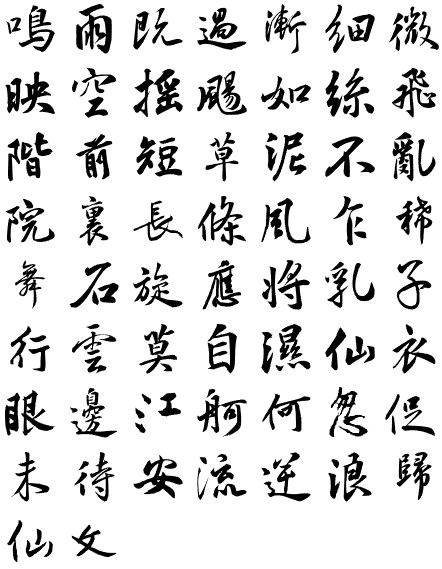 鳴雨既過漸細微
映空搖颺如絲飛
階前短草泥不亂
院裏長條風乍稀
舞石旋應將乳子
行雲莫自濕仙衣
眼邊江舸何忽促
未待安流逆浪歸
仙文